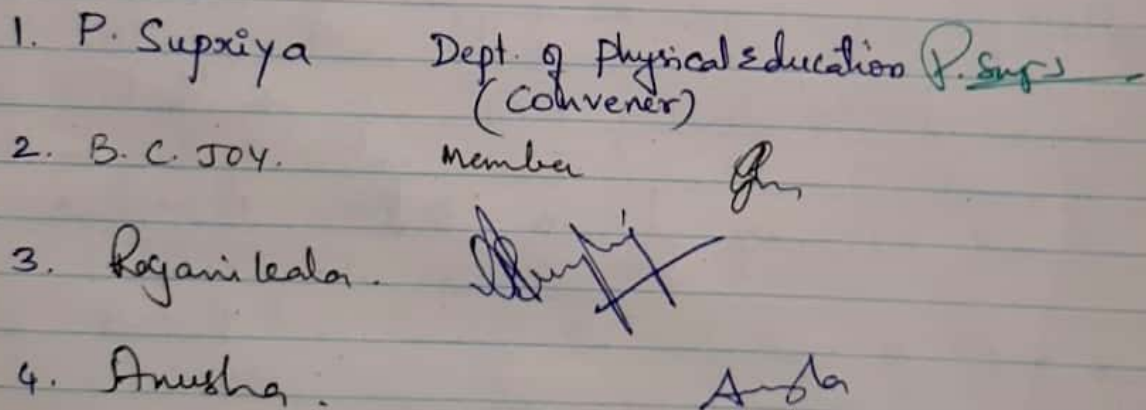 1. P. Supriya Dept. of Physical Education P. Sup
(Convener)
2. B. C. JOY. Member
3.
4. Anusha.